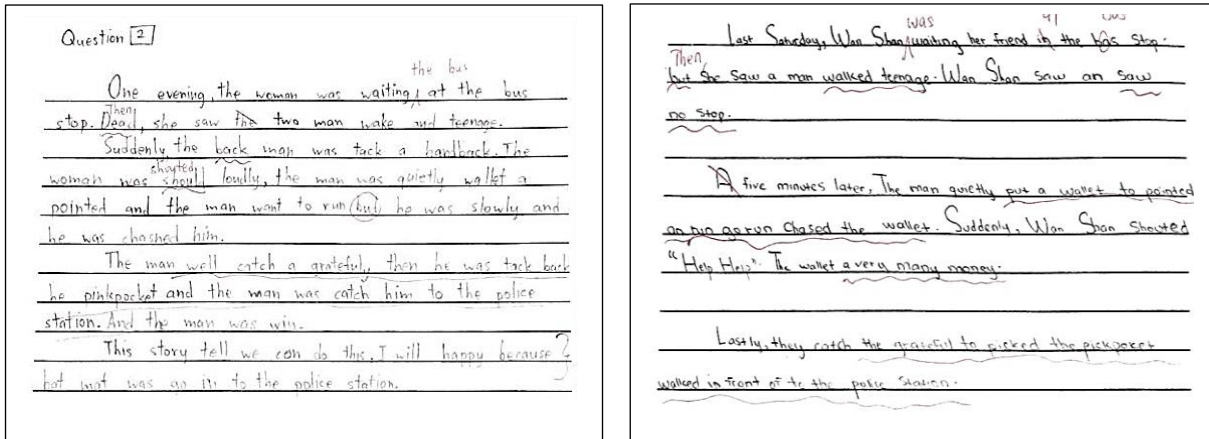 Question 2
the bus
One evening, the woman was waiting at the bus
Then
stop. Dead, she saw the two man wake and teenage.
Suddenly the back man was tack a handback. The
shouted
woman was shoull loudly, the man was quietly wallet a
pointed and the man want to run but he was slowly and
he was chashed him.
The man well catch a grateful, then he was tack back
he pinkpocket and the man was catch him to the police
station. And the man was win.
This story tell we can do this, I will happy because ?
hat mat was go in to the police station.
was at bus
Last Saturday, Wan Shan waiting her friend in the bas stop.
Then
but she saw a man walked teenage. Wan Shan saw an saw
no stop.
A five minutes later, The man quietly put a wallet to pointed
an run go run chased the wallet. Suddenly, Wan Shan shouted
"Help Help". The wallet a very many money.
Lastly, they catch the grateful to picked the pickpoket
walked in front of to the police station.